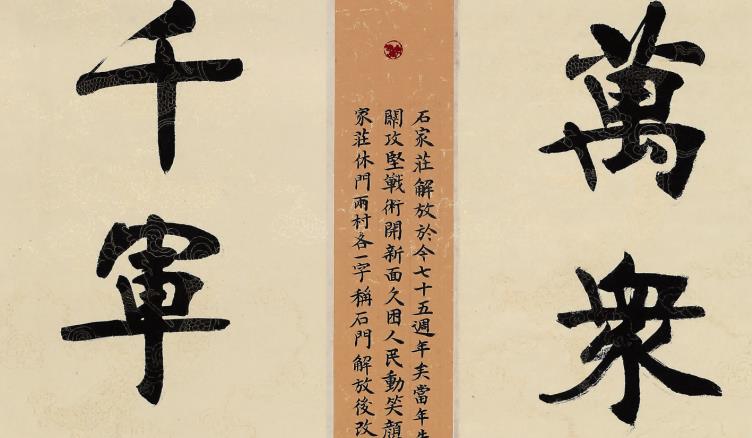 萬衆
石家莊解放於今七十五週年矣當年先
閞攻堅戰術開新面久困人民動笑顔
家莊休門兩村各一字稱石門解放後改
千軍